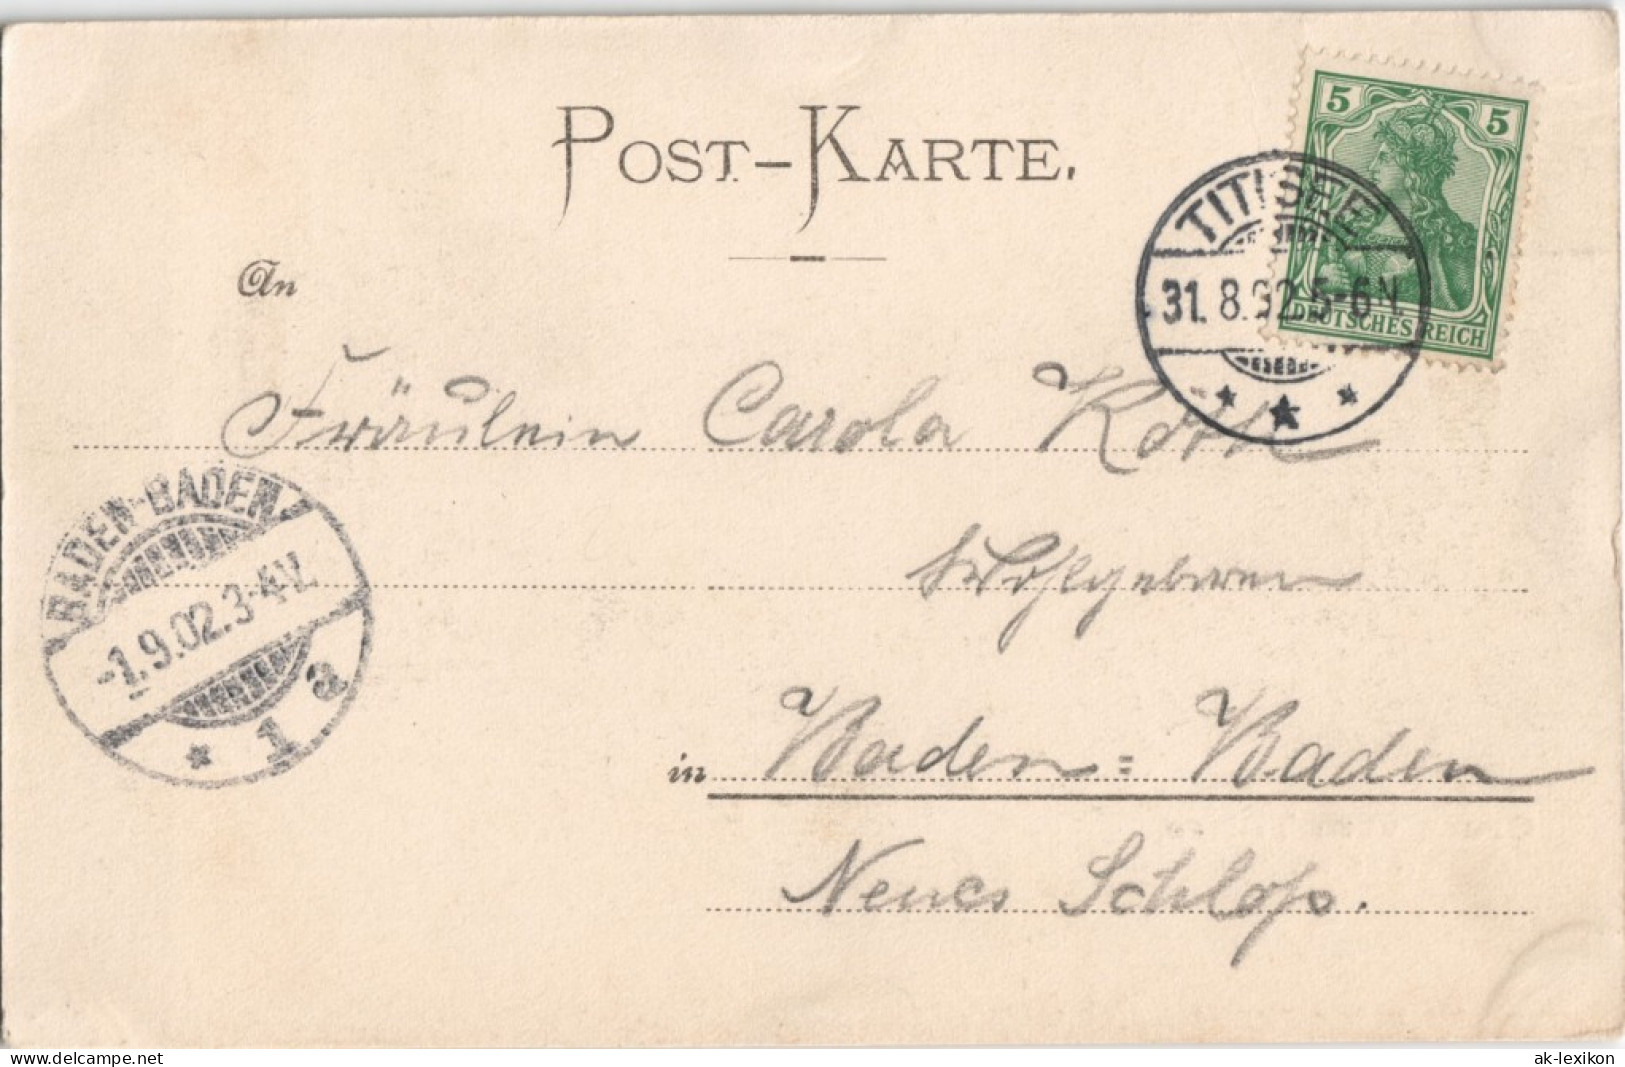 POST-KARTE.
5 5
DEUTSCHES REICH
TITISEE
31. 8. 02. 5-6 N.
An
Fräulein Carola
Wohlgeboren
BADEN-BADEN
-1. 9. 02. 3-4 V.
* 1 a
in Baden=Baden
Neues Schloß.
www.delcampe.net
ak-lexikon